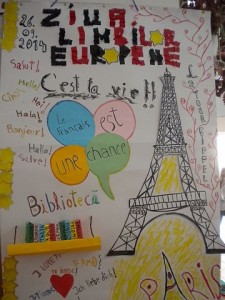 26.
09.2019
ZIUA
LIMBILOR
EUROPENE
Salut!
C'est la vie!!
Hello!
Hola!
Bonjour!
Hello!
Salve!
le
français
est
une chance
LA TOUR EIFFEL
Bibliotecă
PARIS